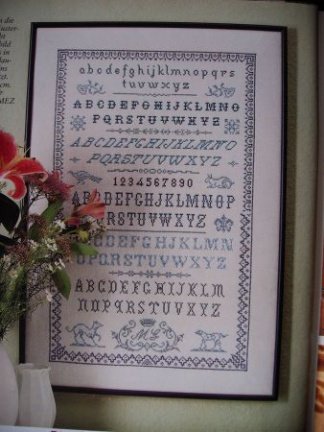 n die
uster-
bild
s in
ns
cm.
MEZ
abcdefghijklmnopqrs
tuvwxyz
ABCDEFGHIJKLMNO
PQRSTUVWXYZ
ABCDEFGHIJKLMN
OPQRSTUVWXYZ
1234567890
ABCDEFGHIJKLMNOP
QRSTUVWXYZ
ABCDEFGHIJKLMN
OPQRSTUVWXYZ
ABCDEFGHIJKLM
NOPQRSTUVWXYZ